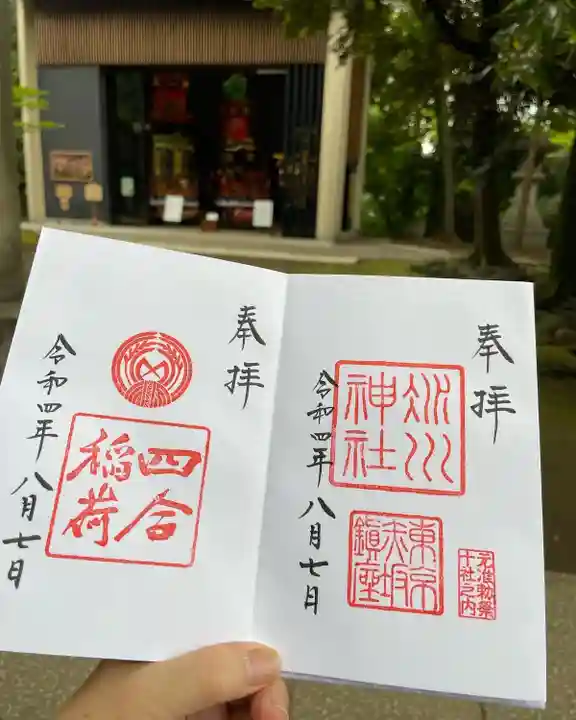 奉拝
氷川
神社
東京
赤坂
鎮座
元准勅祭
十社之内
令和四年八月七日
奉拝
四合
稲荷
令和四年八月七日